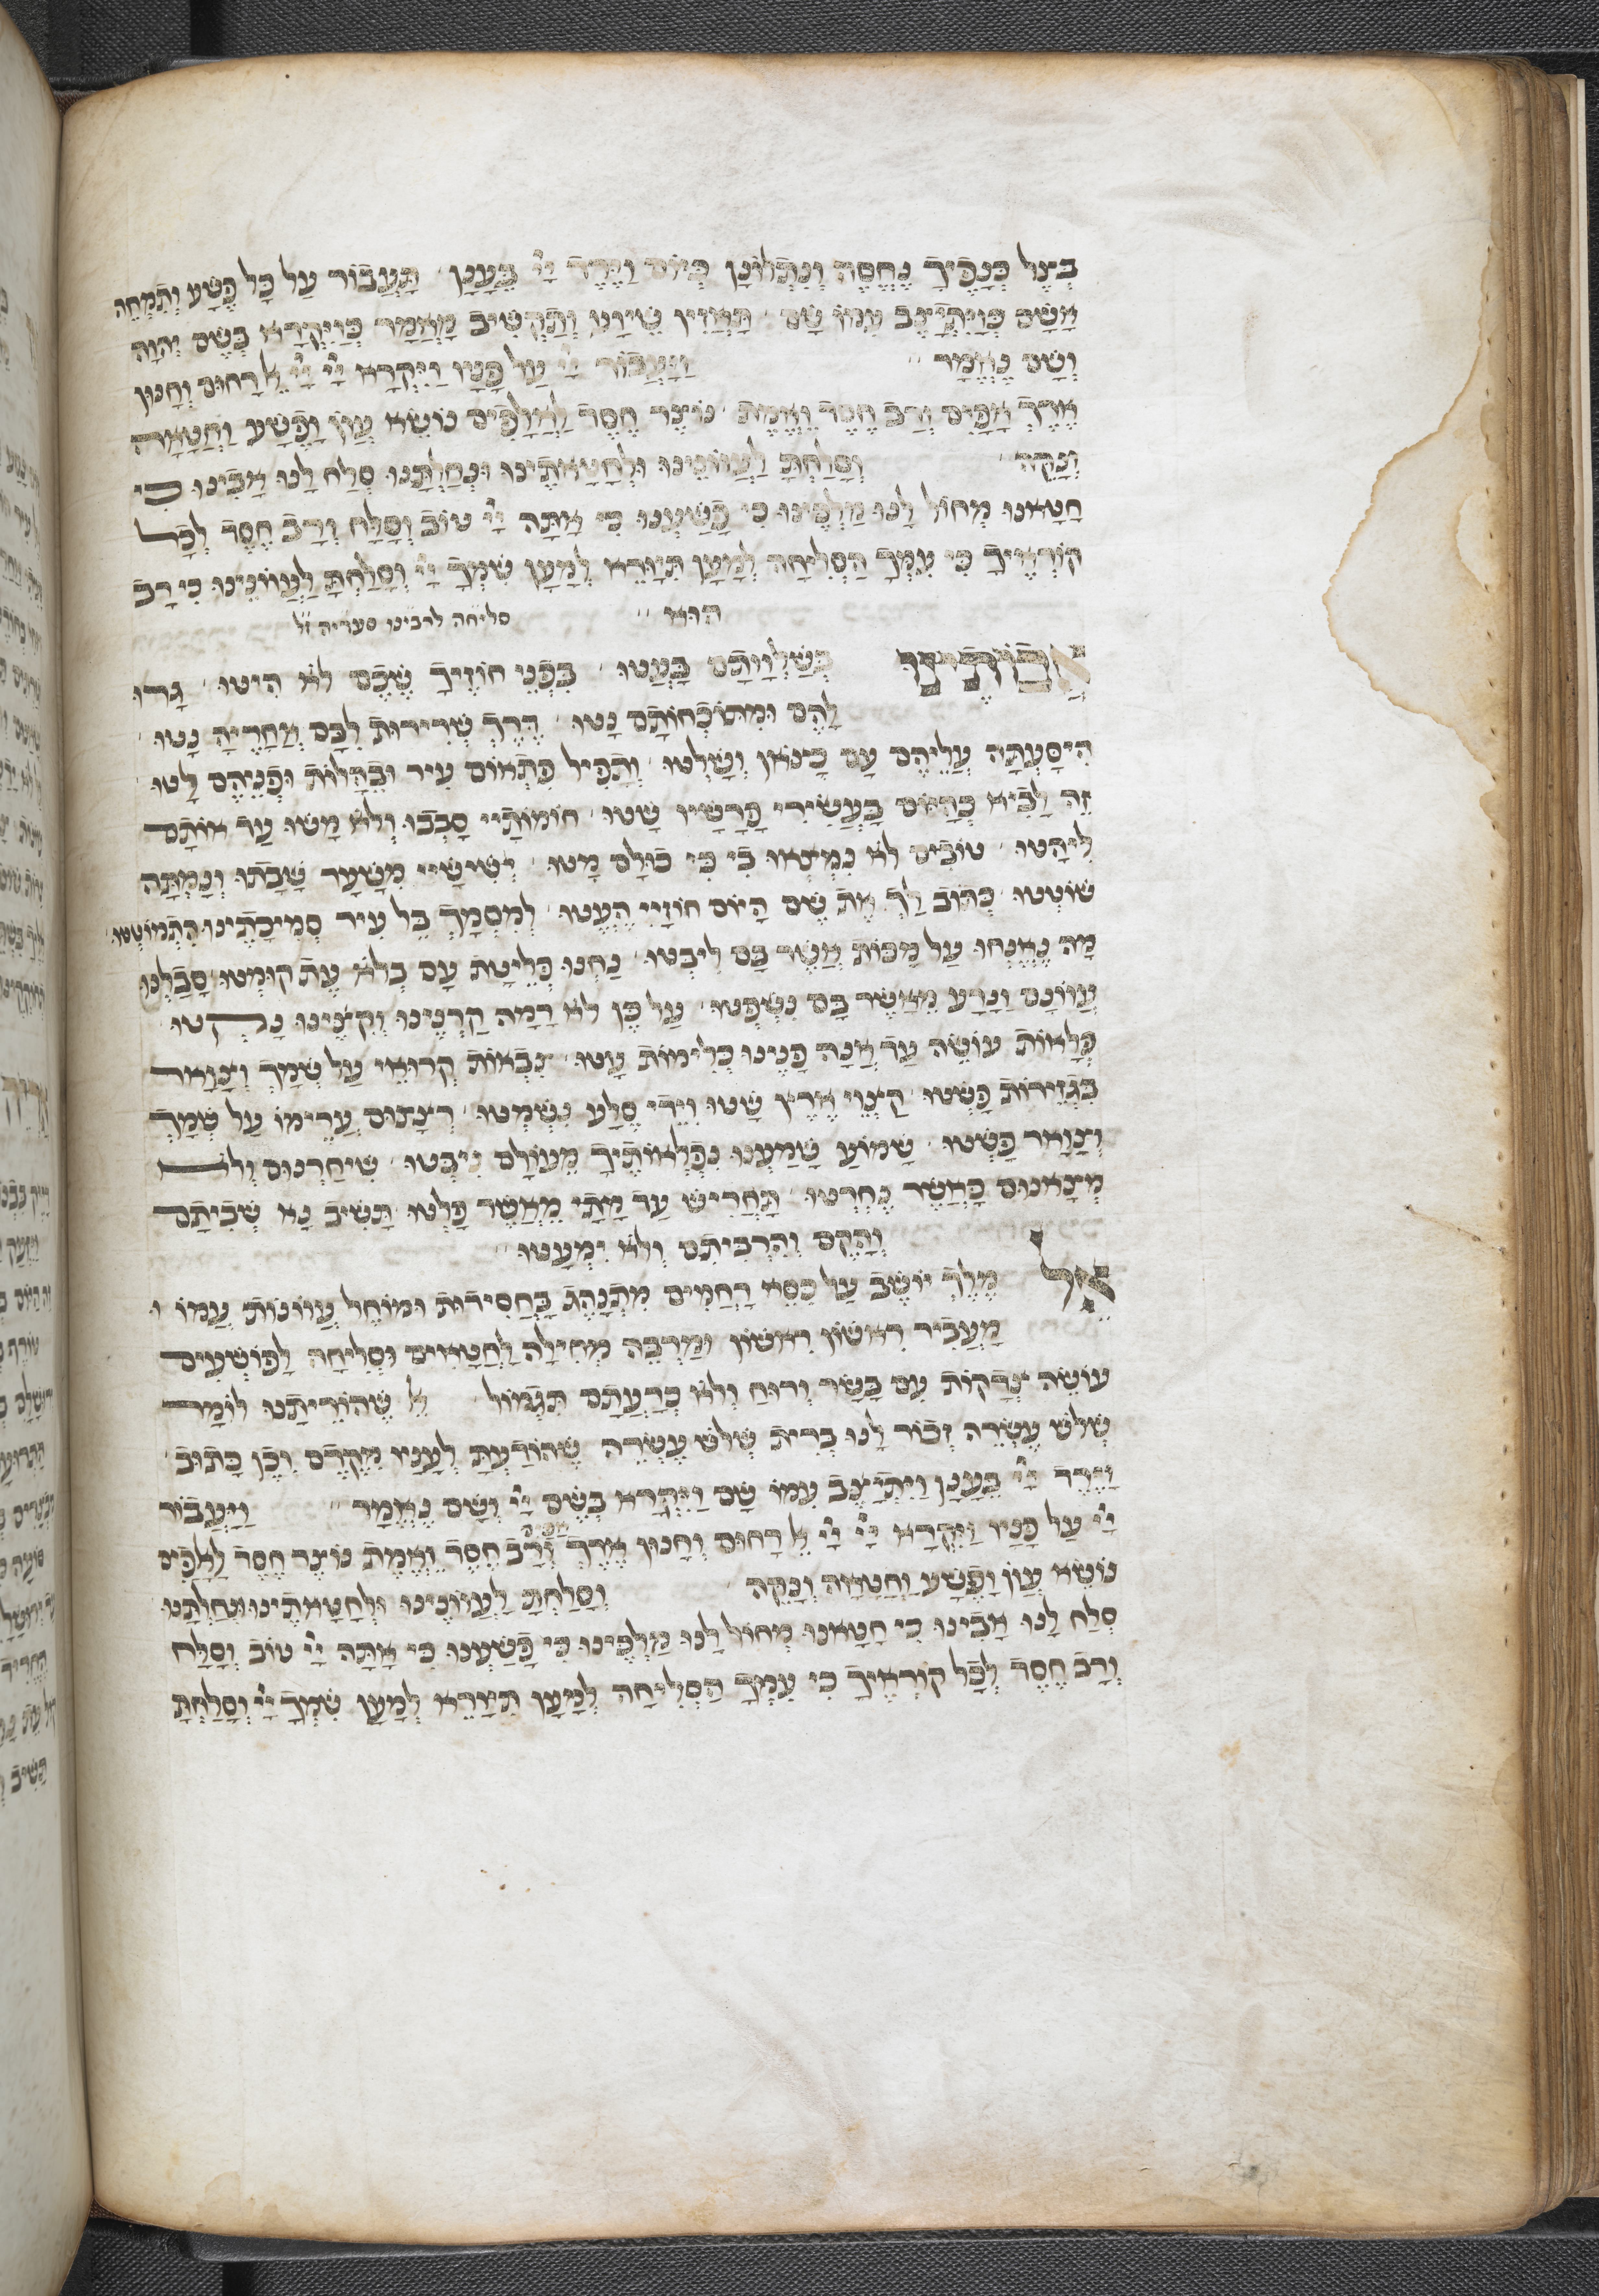 בצל כנפיך נחסה ונתלונן כיום וירד יי בענן תעבור על כל פשע ותמחה
אשם כויתיצב עמו שם תאזין שיוע ותקשיב מאמר כויקרא בשם יהוה
ושם נאמר ויעבור יי על פניו ויקרא יי יי אל רחום וחנון
ארך אפים ורב חסד ואמת נוצר חסד לאלפים נושא עון ופשע וחטאה
ונקה וסלחת לעונינו ולחטאתינו ונחלתנו סלח לנו אבינו כי
חטאנו מחול לנו מלכינו כי פשענו כי אתה יי טוב וסלח ורב חסד לכל
קוראיך כי עמך הסליחה למען תיורא למען שמך יי וסלחת לעונינו כי רב
הוא סליחה לרבינו סעדיה זל
כשלוותם בעטו בפני חוזיך שכם לא היטו גרו
להם ומתוכחותם נטו דרך שרירות לבם אחריה נטו
היסעתה עליהם עם כצאן ושלטו ותפיל פתאום עיר ובהלות ופניהם לטו
זה לביא בעשירי פרשיו שטו חומותיי סבבו ולא משו עד אותם
ליהטו טובים לא נמצאו בי כי כולם מטו ישישיי משער שבתו
שוטטו כתוב לך את שם היום חוזיי עיר סמיכתינו התמוטטו
מה נאנחו על מכות אשר בם ליבטו נחנו פליטת עם בלא עת קומטו סבלנו
עוונם ונרע מאשר בם נשפטו על כן לא רמה קרנינו
פלאות עושה עד אנה פנינו כלימות עטו צבאות קרואי על שמך וצואר
בגזירות פשטו קצוי ארץ שטו וידי סלע נשמטו על שמך
וצואר פשטו שמוע שמענו נפלאותיך מעולם ניבטו שיחרנום ולא
מצאנום כאשר נחרטו תחריש עד מתי מאשר פלטו תשיב נא שביתם
והקם והרביתם ולא ימעטו
אל מלך יושב על כסא רחמים מתנהג בחסידות ומוחל עוונות עמו ו
מעביר ראשון ראשון ומרבה מחילה לחטאים וסליחה לפושעים
עושה צדקות עם בשר ורוח ולא כרעתם תגמול אל שהוריתנו לומר
שלש עשרה זכור לנו ברית שלש עשרה שהודעת לעניו מקדם וכן כתוב
וירד יי בענן ויתיצב עמו שם ויקרא בשם יי ושם נאמר ויעבור
יי על פניו ויקרא יי יי אל רחום וחנון ארך ורב חסד ואמת נוצר חסד לאלפים
נושא עון ופשע וחטאה ונקה וסלחת לעונינו ולחטאתינו ונחלתנו
סלח לנו אבינו כי חטאנו מחול לנו מלכינו כי פשענו כי אתה יי טוב וסלח
ורב חסד לכל קוראיך כי עמך הסליחה למען תיורא למען שמך יי וסלחת